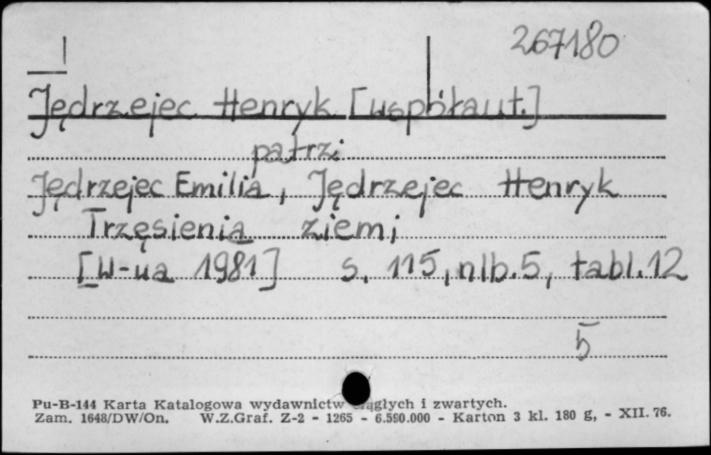 267180
Jędrzejec Henryk [współaut.]
patrzi
Jędrzejec Emilia, Jędrzejec Henryk
Trzęsienia ziemi
[W-wa 1981] s. 115, nlb. 5, tabl. 12
5
Pu-B-144 Karta Katalogowa wydawnictw ciągłych i zwartych.
Zam. 1648/DW/On. W.Z.Graf. Z-2 - 1265 - 6.590.000 - Karton 3 kl. 180 g, - XII. 76.